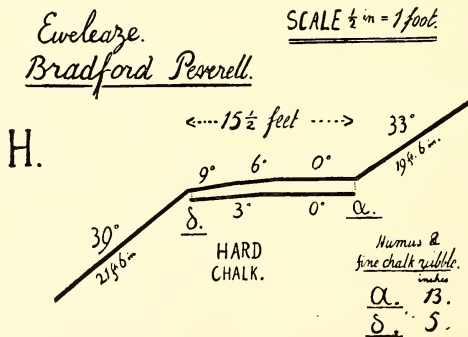 Eweleaze.
Bradford Peverell.
SCALE ½ in = 1 foot.
H.
<····· 15 ½ feet ·····>
33°
19 ft. 6 in.
9° 6° 0°
3° 0°
δ. α.
39°
21 ft 6 in
HARD
CHALK.
Humus &
fine chalk rubble.
inches
α. 13.
δ. " 5.